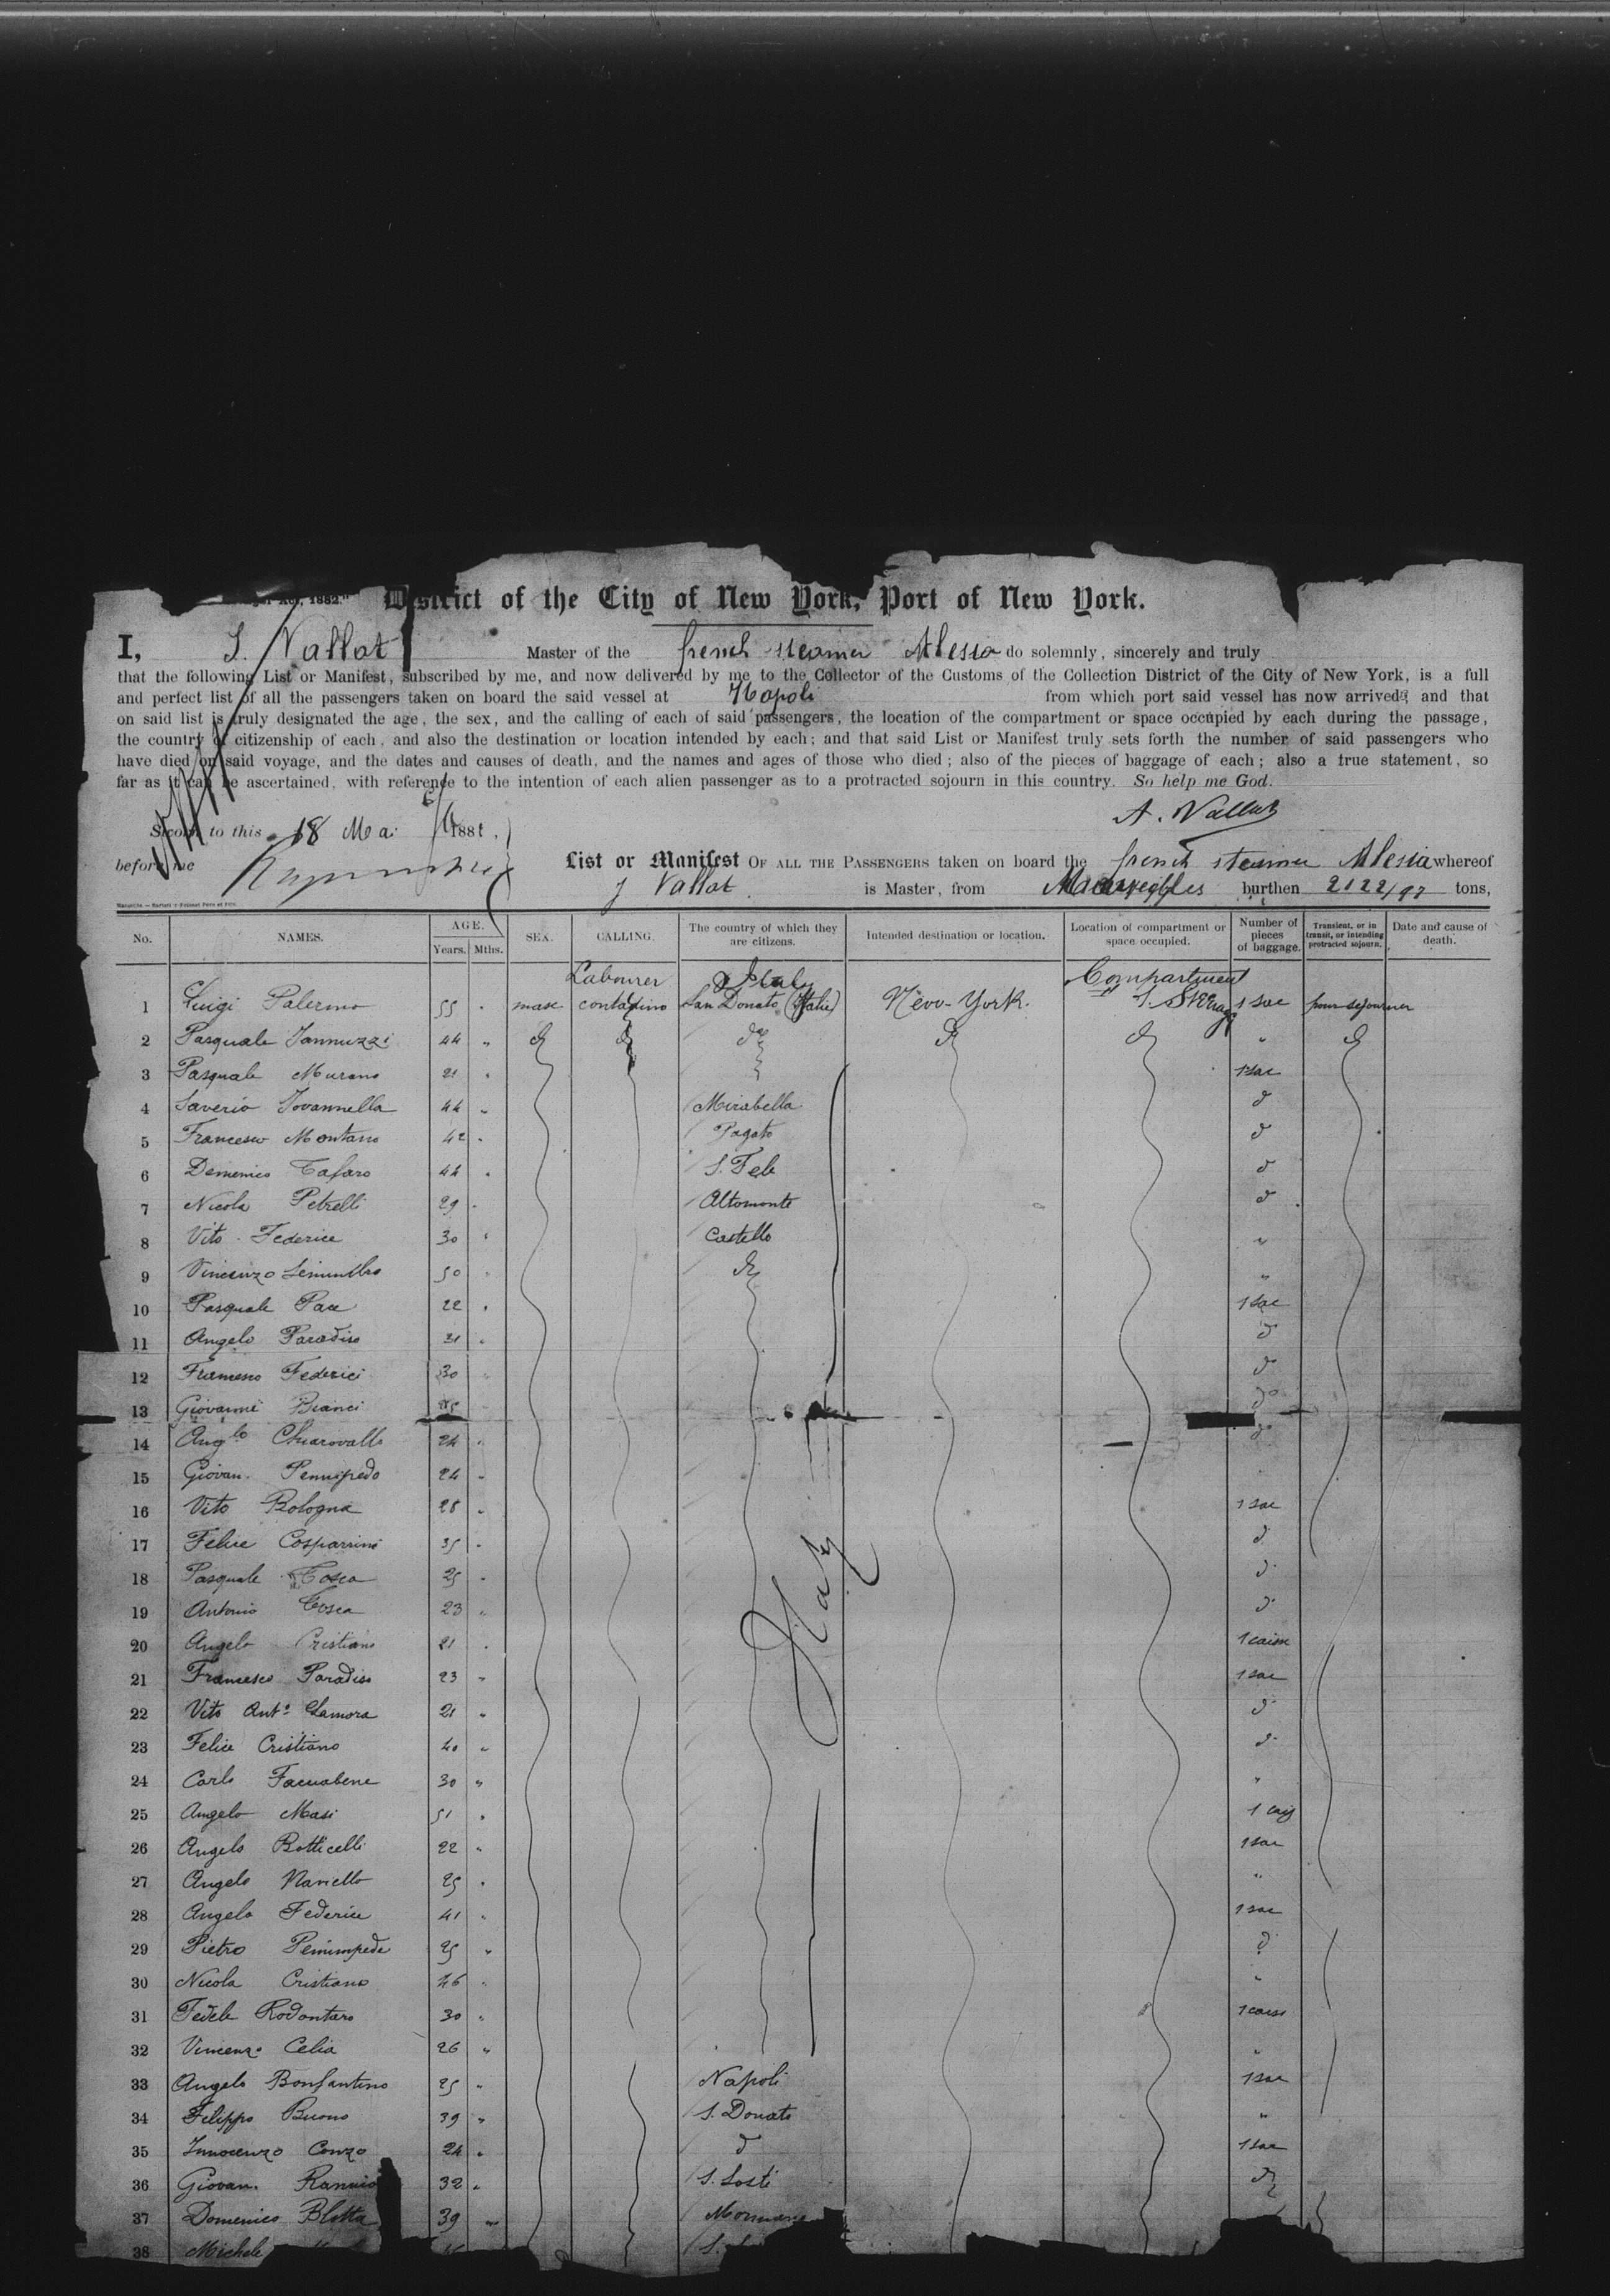 Act, 1882."
District of the City of New York, Port of New York.
I, J. Vallat Master of the french steamer Alesia do solemnly, sincerely and truly
that the following List or Manifest, subscribed by me, and now delivered by me to the Collector of the Customs of the Collection District of the City of New York, is a full
and perfect list of all the passengers taken on board the said vessel at Napoli from which port said vessel has now arrived; and that
on said list is truly designated the age, the sex, and the calling of each of said passengers, the location of the compartment or space occupied by each during the passage,
the country of citizenship of each, and also the destination or location intended by each; and that said List or Manifest truly sets forth the number of said passengers who
have died on said voyage, and the dates and causes of death, and the names and ages of those who died; also of the pieces of baggage of each; also a true statement, so
far as it can be ascertained, with reference to the intention of each alien passenger as to a protracted sojourn in this country. So help me God.
A. Vallat
Sworn to this 18 Mai 188
before me
List or Manifest OF ALL THE PASSENGERS taken on board the french steamer Alesia whereof
J Vallat is Master, from burthen 2122/97 tons,
No. NAMES. AGE. Years. Mths. SEX. CALLING. The country of which they are citizens. Intended destination or location. Location of compartment or space occupied. Number of pieces of baggage. Transient, or in transit, or intending protracted sojourn. Date and cause of death.
Labourer Italy Compartment
1 Luigi Palermo 55 " masc contadino San Donato (Italie) New-York. 1. Steerage 1 sac pour sejourner
2 Pasquale Iannuzzi 44 " d d d d d " d
3 Pasquale Murano 21 " 1 sac
4 Saverio Iovannella 44 " Mirabella d
5 Francesco Montano 42 " Pagato d
6 Demenico Tafaro 44 " S. Fele d
7 Nicola Petrelli 29 " Altomonte d
8 Vito Federice 30 " Castello "
9 Vincenzo 50 " d "
10 Pasquale Pace 22 " 1 sac
11 Angelo Paradiso 31 " d
12 Francesco Federici 30 " d
13 Giovanni Bianci d°
14 Ang.lo Chiarovallo 24 " d°
15 Giovan. Pennipedo 24 "
16 Vito Bologna 28 " 1 sac
17 Felice Cosparrini 35 " d
18 Pasquale Tosca 25 " d
19 Antonio Tosca 23 " d
20 Angelo Cristiano 21 " 1 caisse
21 Francesco Paradiso 23 " 1 sac
22 Vito Ant.° Lamora 21 " d
23 Felice Cristiano 40 " d
24 Carlo Facciabene 30 " "
25 Angelo Masi 51 " 1 cais
26 Angelo Botticelli 22 " 1 sac
27 Angelo Nariello 25 " "
28 Angelo Federice 41 " 1 sac
29 Pietro Penimpede 25 " d
30 Nicola Cristiano 46 " "
31 Fedele Rodontaro 30 " 1 caiss
32 Vincenz° Celia 26 " "
33 Angelo Bonfantino 25 " Napoli 1 sac
34 Filippo Buono 39 " S. Donato "
35 Innocenzo Conzo 24 " d 1 sac
36 Giovan. Rannio 32 " S. Sosti d
37 Domenico Blotta 39 " Mormanno
38 Michele S.
Italy